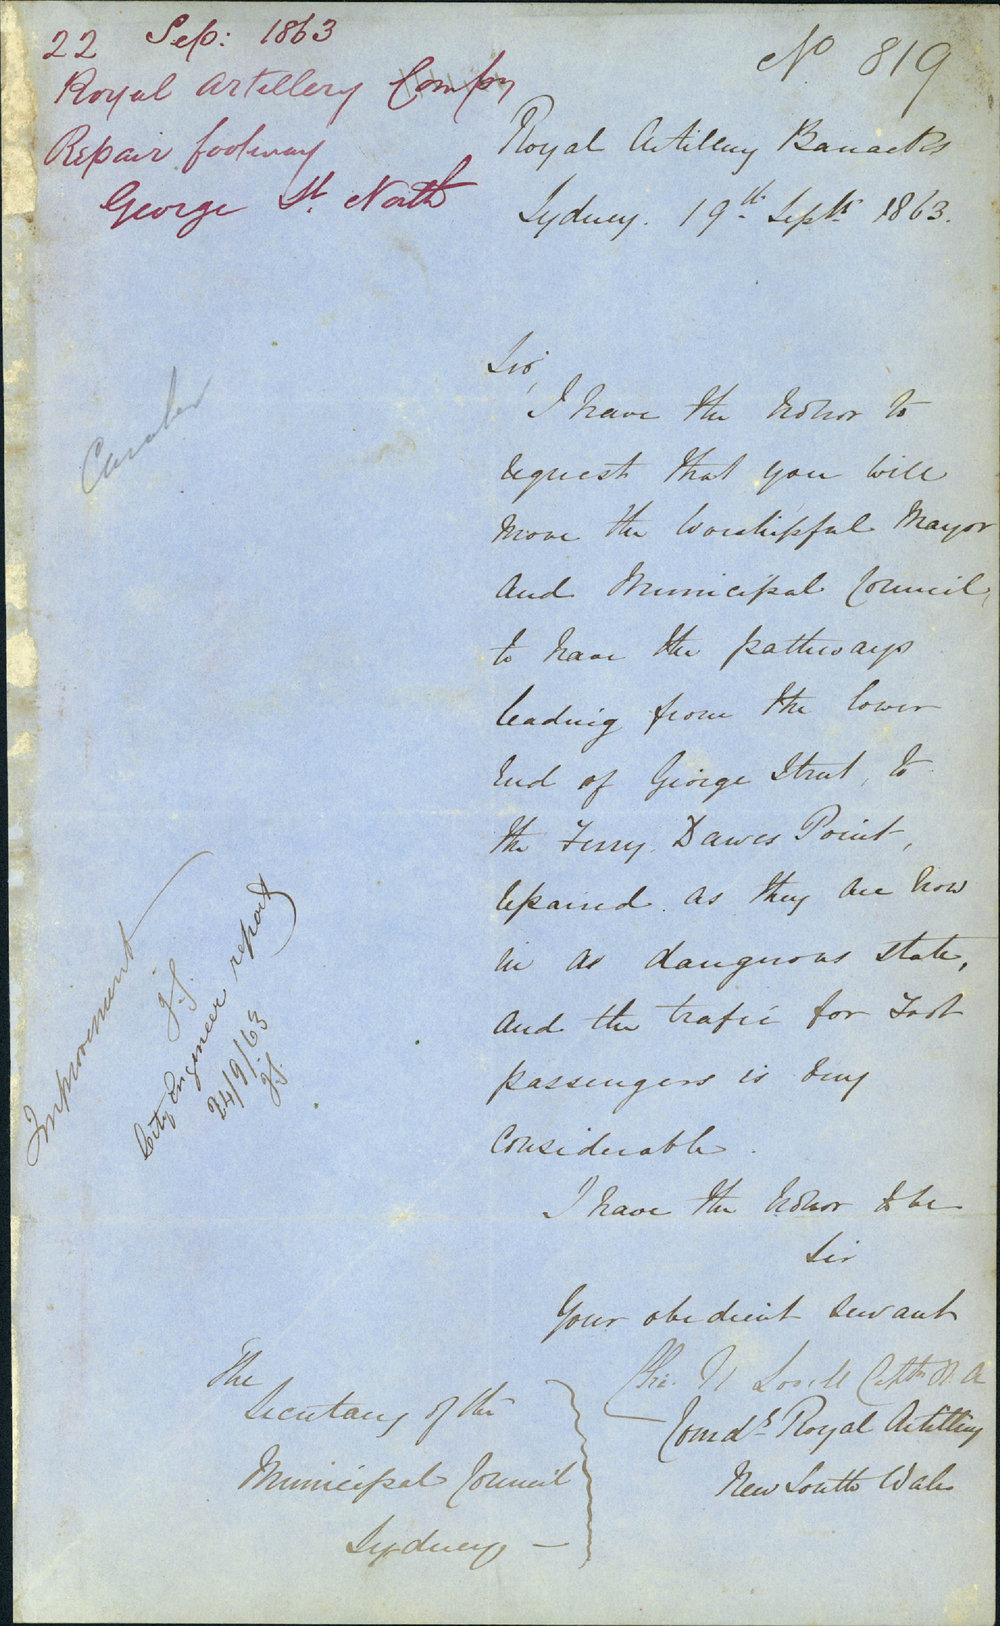 22 Sep: 1863
Royal Artillery Compy
Repair footway
George St. North
No 819
Royal Artillery Barracks
Sydney. 19th Sept 1863.
Sir,
I have the honor to
request that you will
move the Worshipful Mayor
and Municipal Council,
to have the pathways
leading from the lower
End of George Street, to
the Ferry, Dawes Point,
repaired as they are now
in as dangerous state,
and the trafic for Foot
passengers is very
Considerable.
I have the honor to be
Sir
Your obedient Servant
Chs. N Lovell Captn R.A
Comdg Royal Artillery
New South Wales
The
Secretary of the
Municipal Council
Sydney —
Improvement
J.S.
City Engineer report
24/9/63
J.S.